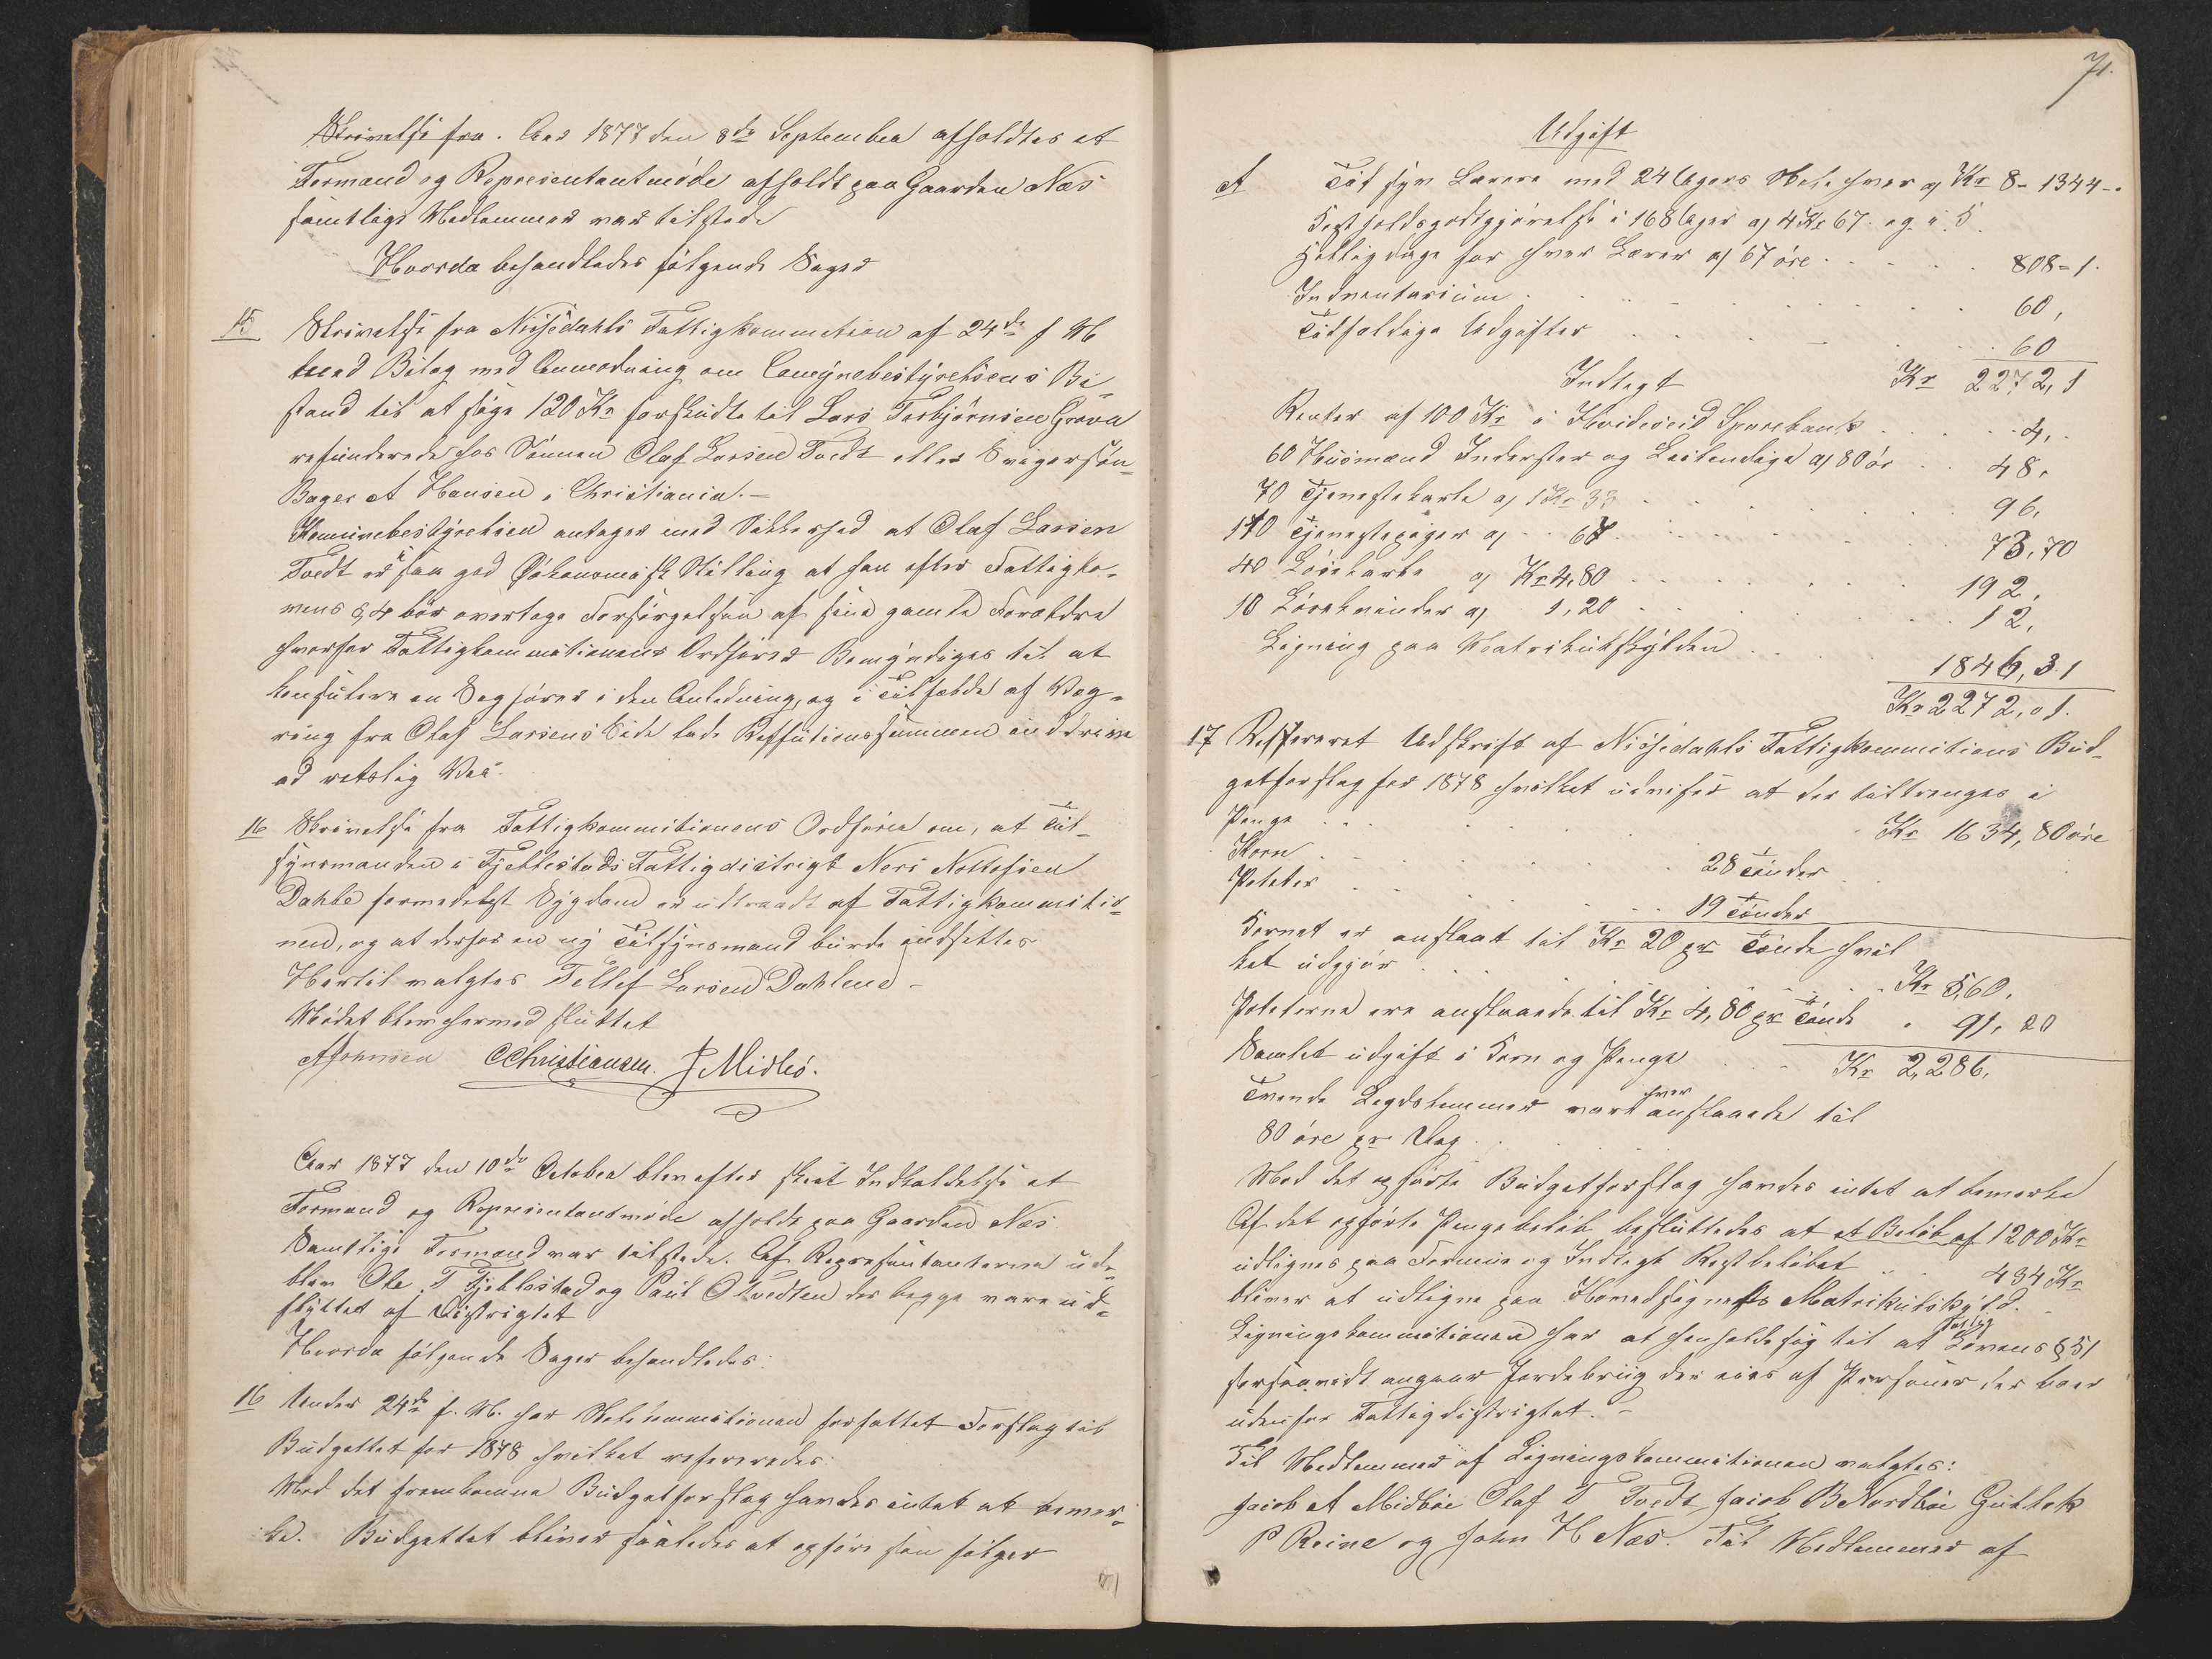 Skrivelse fra. Aar 1877 den 8de September afholdtes et
Formand og Representantmöde afholdt paa Gaarden Næs
samtlige Medlemmer var tilstede
Hvorda behandledes fölgende Sager
15 Skrivelse fra Nissedahls Fattigkommition af 24de f M
med Bilag med Anmodning om Comynebestyrelsens Bi-
stand til at söge 120 Kr forskudte til Lars Torbjörnsen Grova
refunderede hos Sönnen Olaf Larsen Tvedt eller Svigersön-
Bager A Hansen i Christiania.-
Komunebestyrelsen antager med Sikkerhed at Olaf Larsen
Tvedt er i saa god Økonomisk Stilling at han efter Fattiglo-
vens § 4 bör overtage Forsörgelsen af sine gamle Forældre
hvorfor Fattigkommitionens Ordförer Bemyndiges til at
konsulere en Sagförer i den Anledning, og i Tilfælde af Væg-
ring fra Olaf Larsens Side lade Reffutionssummen inddrive
ad retslig Vei.
16 Skrivelse fra Fattigkommitionens Ordförer om, at Til-
synsmanden i Fjellestads Fattigdistrigt Ners Nottosen
Dahle formedelst Sygdom er uttraadt af Fattigkommitio-
nen, og at derfor en ny Tilsynsmand burde indsettes
Hertil valgtes Tellef Larsen Dahlene -
Mödet blev hermed sluttet
AJohnsen CChristiansen. J Midbö.
Aar 1877 den 10de October blev efter skeet Indkaldelse et
Formand og Representantmöde afholdt paa Gaarden Næs
Samtlige Formænd var tilstede. Af Representanterne ude-
blev Ole T Fjellestad og Paul O Tvedten der begge vare ud-
flyttet af Distrigtet
Hvorda fölgende Sager behandledes:
16 Under 24de f. M. har Skolekommitionen forfattet Forslag til
Budgettet for 1878 hvilket refereredes.
Med det fremkomne Budgetforslag havdes intet at bemær-
ke. Budgettet bliver saaledes at opföre som fölger
71.
Udgift
A Til syv Lærere med 24 Ugers Skole hver a Kr 8 - 1344 -
Kostholdsgodtgjörelse i 168 Uger a 4 Kr 67. og i 5
Helligdage for hver Lærer a 67 öre . . . 808 - 1.
Indventarium . . . 60,
Tilfældige Udgifter . . . 60
Indtegt Kr 2272, 1
Renter af 100 Kr i Hvideseid Sparebank . . . 4,
60 Husmænd Inderster og Leilendige a 80 ör . . 48,
70 Tjenestekarle a 1 Kr 33 . . . 96,
110 Tjenestepiger a . . 67 . . . 73,70
40 Löskarle a Kr 4,80 . . . 192,
10 Löskvinder a 1,20 . . . 12,
Ligning paa Matrikulskylden . . . 1846,31
Kr 2272,01.
17 Reffereret Udskrift af Nissedahls Fattigkommitions Bud-
getforslag for 1878 hvilket udviser at der tiltrenges i
Penge . . . Kr 1634,80 öre
Korn . . . 28 Tönder
Poteter . . . 19 Tönder
Kornet er anslaat til Kr 20 pr Tönde hvil
ket udgjör . . . Kr 560,
Poteterne ere anslaaede til Kr 4,80 pr Tönde . 91,20
Samlet udgift i Korn og Penge . . . Kr 2,286,
Tvende Legdslemmer vare hver anslaaede til
80 öre pr Dag . .
Med det opförte Budgetforslag havdes intet at bemerke
Af det opförte Pengebelöb besluttedes at et Belöb af 1200 Kr
udlignes paa Formue og Indtegt Restbelöbet . . 434 Kr
bliver at udligne paa Hovedsognets Matrikulskyld.
Ligningskommitionen har at henholde sig til at Fattig Lovens § 51
forsaavidt angaar Jordebrug der eies af Personer der boer
udenfor Fattigdistrigtet. -
Til Medlemmer af Ligningskommitionen valgtes:
Jacob A Midböe Olaf T Tvedt Jacob B Nordböe Gullek
P Reine og John H Næs. Til Medlemmer af